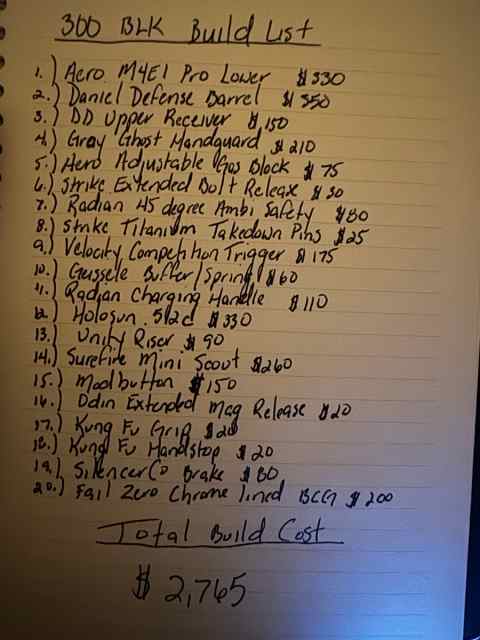 300 BLK Build List
1.) Aero M4E1 Pro Lower $330
2.) Daniel Defense Barrel $350
3.) DD Upper Receiver $150
4.) Gray Ghost Handguard $210
5.) Aero Adjustable Gas Block $75
6.) Strike Extended Bolt Release $30
7.) Radian 45 degree Ambi Safety $80
8.) Strike Titanium Takedown Pins $25
9.) Velocity Competition Trigger $175
10.) Geissele Buffer/Spring $60
11.) Radian Charging Handle $110
12.) Holosun 512c $330
13.) Unity Riser $90
14.) Surefire Mini Scout $260
15.) Modbutton $150
16.) Odin Extended Mag Release $20
17.) Kung Fu Grip $20
18.) Kung Fu Handstop $20
19.) SilencerCo Brake $80
20.) Fail Zero Chrome lined BCG $200
Total Build Cost
$2,765